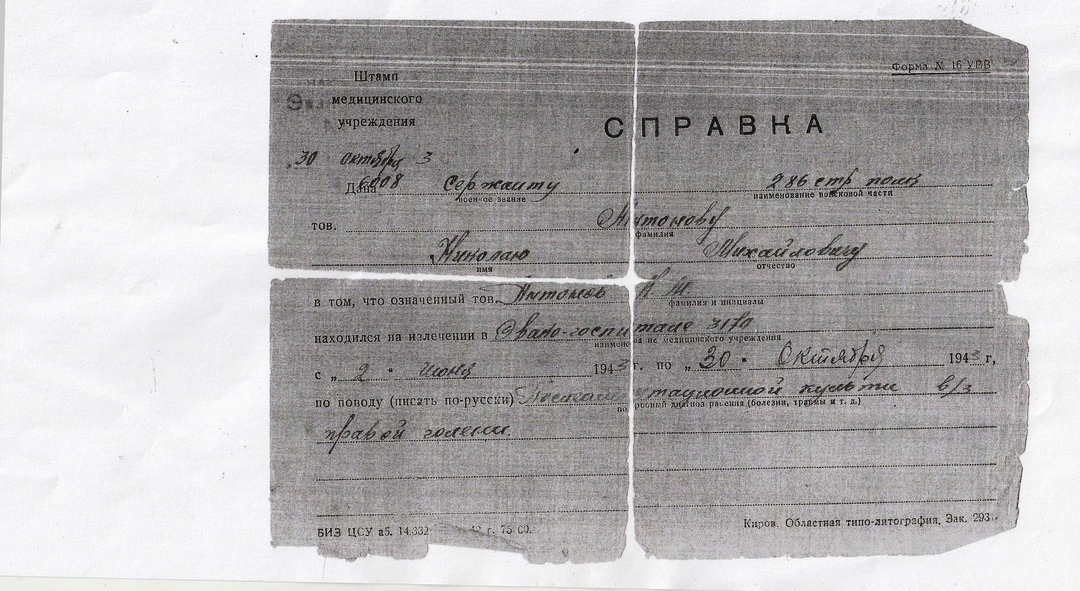 Форма № 16 УВВ
Штамп
медицинского
учреждения
СПРАВКА
30 октября 3
Дана Сержанту 286 стр полк
военное звание наименование войсковой части
тов. Антонову
фамилия
Николаю Михайловичу
имя отчество
в том, что означенный тов. Антонов Н. М.
фамилия и инициалы
находился на излечении в Эвако-госпитале 3170
наименование медицинского учреждения
с „ 2 " июня 1943 г. по „ 30 " Октября 1943 г,
по поводу (писать по-русски) ационной культи в/з
подробный диагноз ранения (болезни, травмы и т. д.)
правой голени.
БИЗ ЦСУ аб. 14.332 г.
Киров. Областная типо-литография, Зак. 293